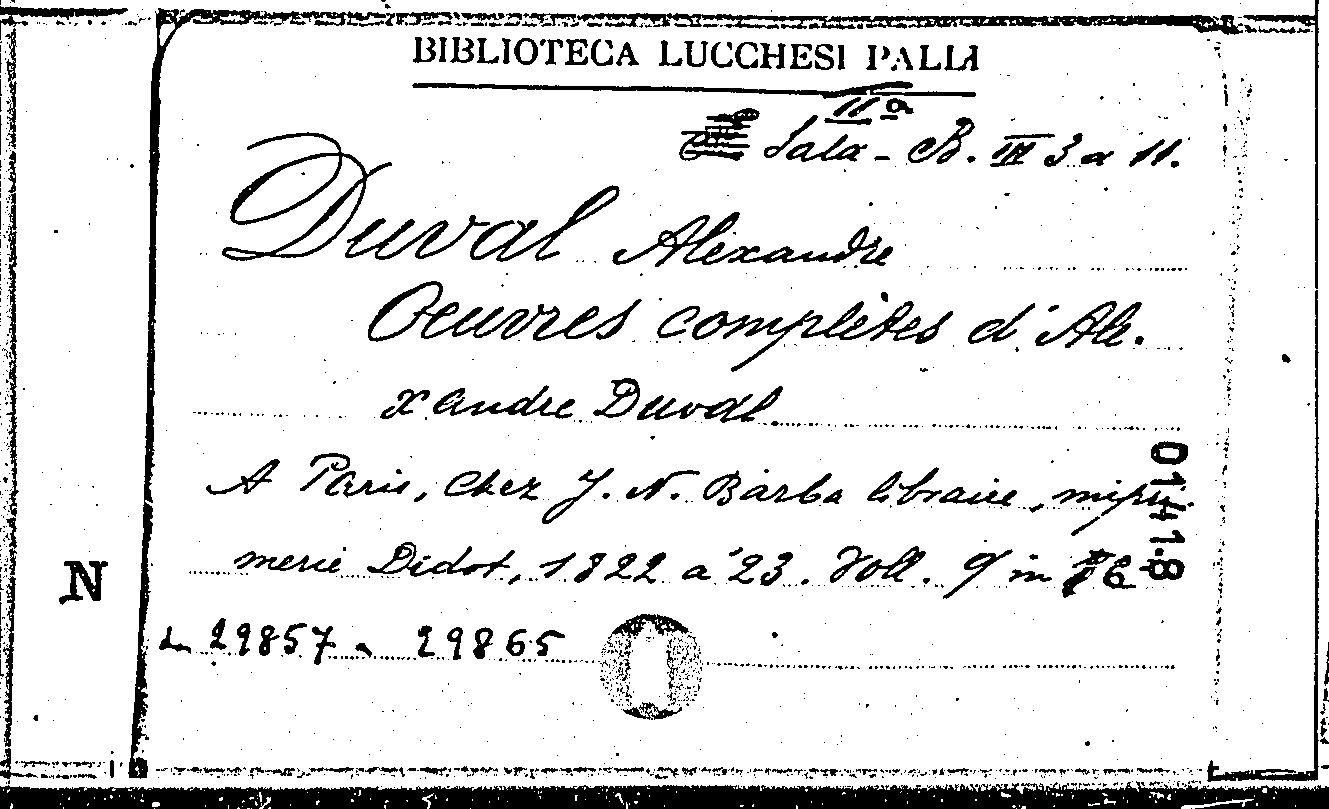 BIBLIOTECA LUCCHESI PALLI
IIª
Sala - B. III 3 a 11.
Duval Alexandre
Oeuvres complètes d'Ale.
xandre Duval
A Paris, chez J. N. Barba libraire, impri.
merie Didot, 1822 a '23. Voll. 9 in
01418
N
da 29857 a 29865